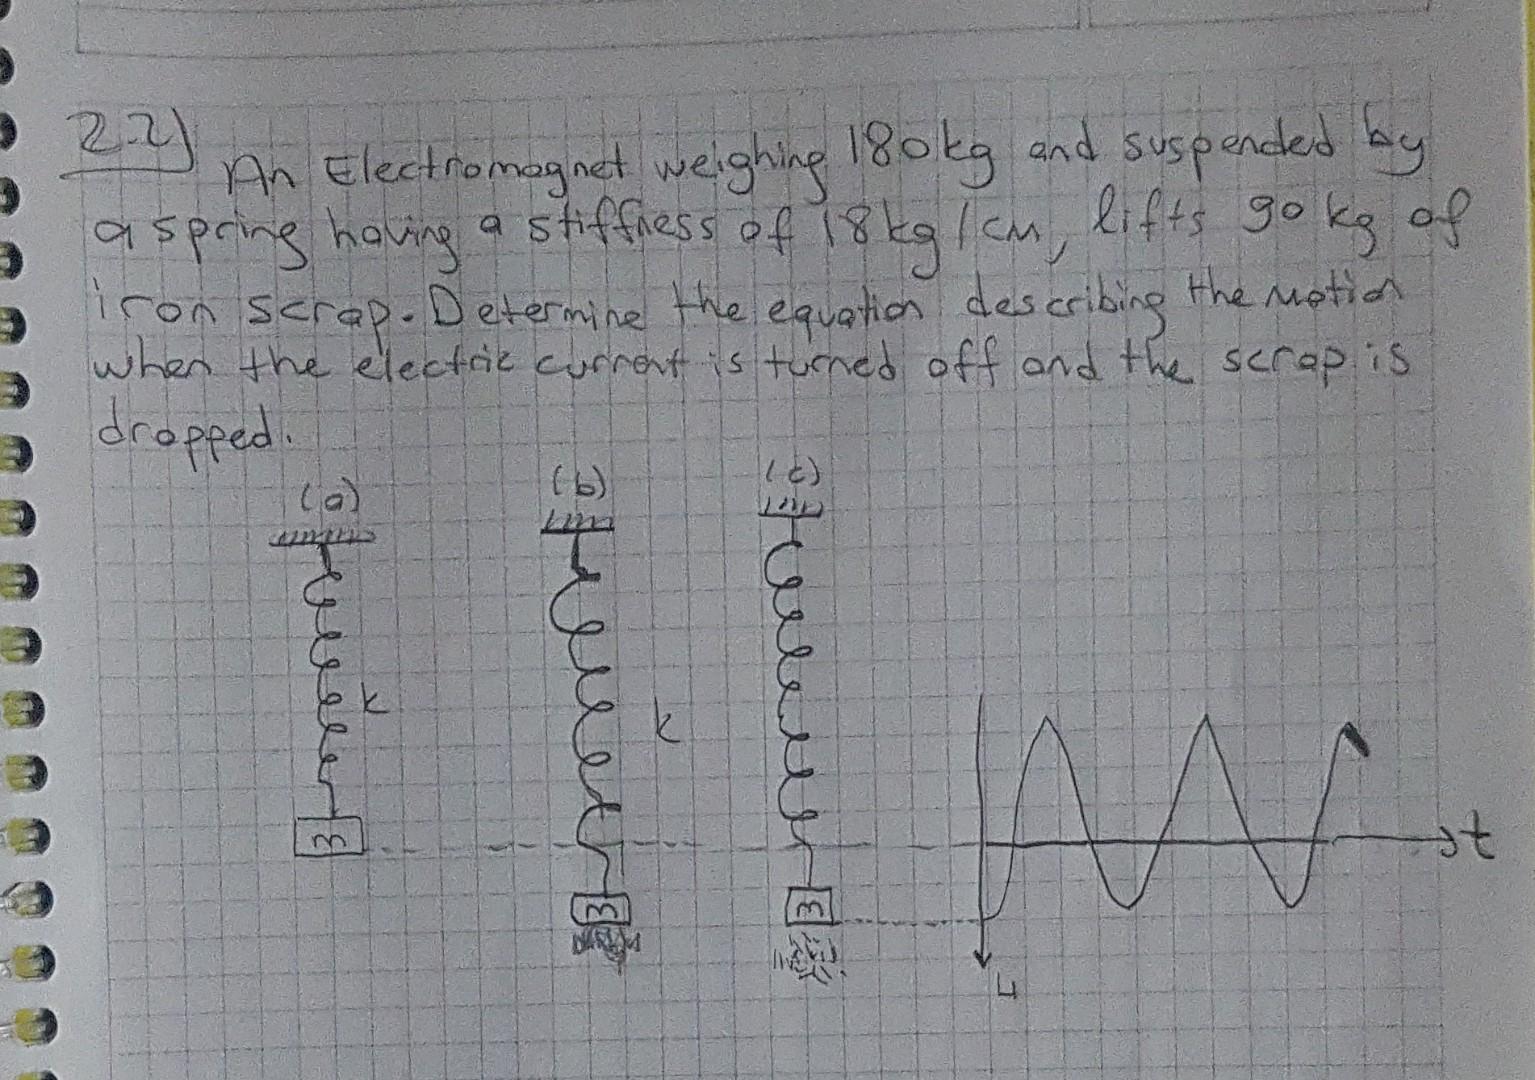 2.2)
An Electromagnet weighing 180kg and suspended by
a spring having a stiffness of 18kg/cm, lifts 90 kg of
iron scrap. Determine the equation describing the motion
when the electric current is turned off and the scrap is
dropped.
(a) (b) (c)
k k
m m m
t